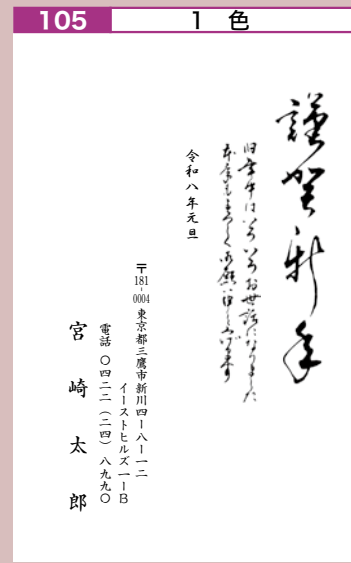 105
1 色
謹賀新年
旧年中はいろいろお世話になりました
本年もよろしくお願い申し上げます
令和八年元旦
〒181-0004 東京都三鷹市新川四ー八ー一二
イーストヒルズ一ー一B
電話 〇四二二(二四)八九九〇
宮崎太郎